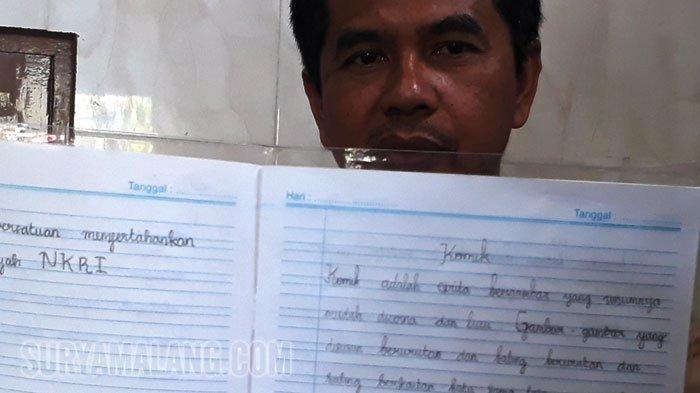 Tanggal :
persatuan mempertahankan
yah NKRI
Hari :
Tanggal :
Komik
Komik adalah cerita bergambar yang umumnya
mudah dicerna dan lucu Gambar-gambar yang
disusun berurutan dan saling berurutan dan
saling berkaitan
SURYAMALANG.COM